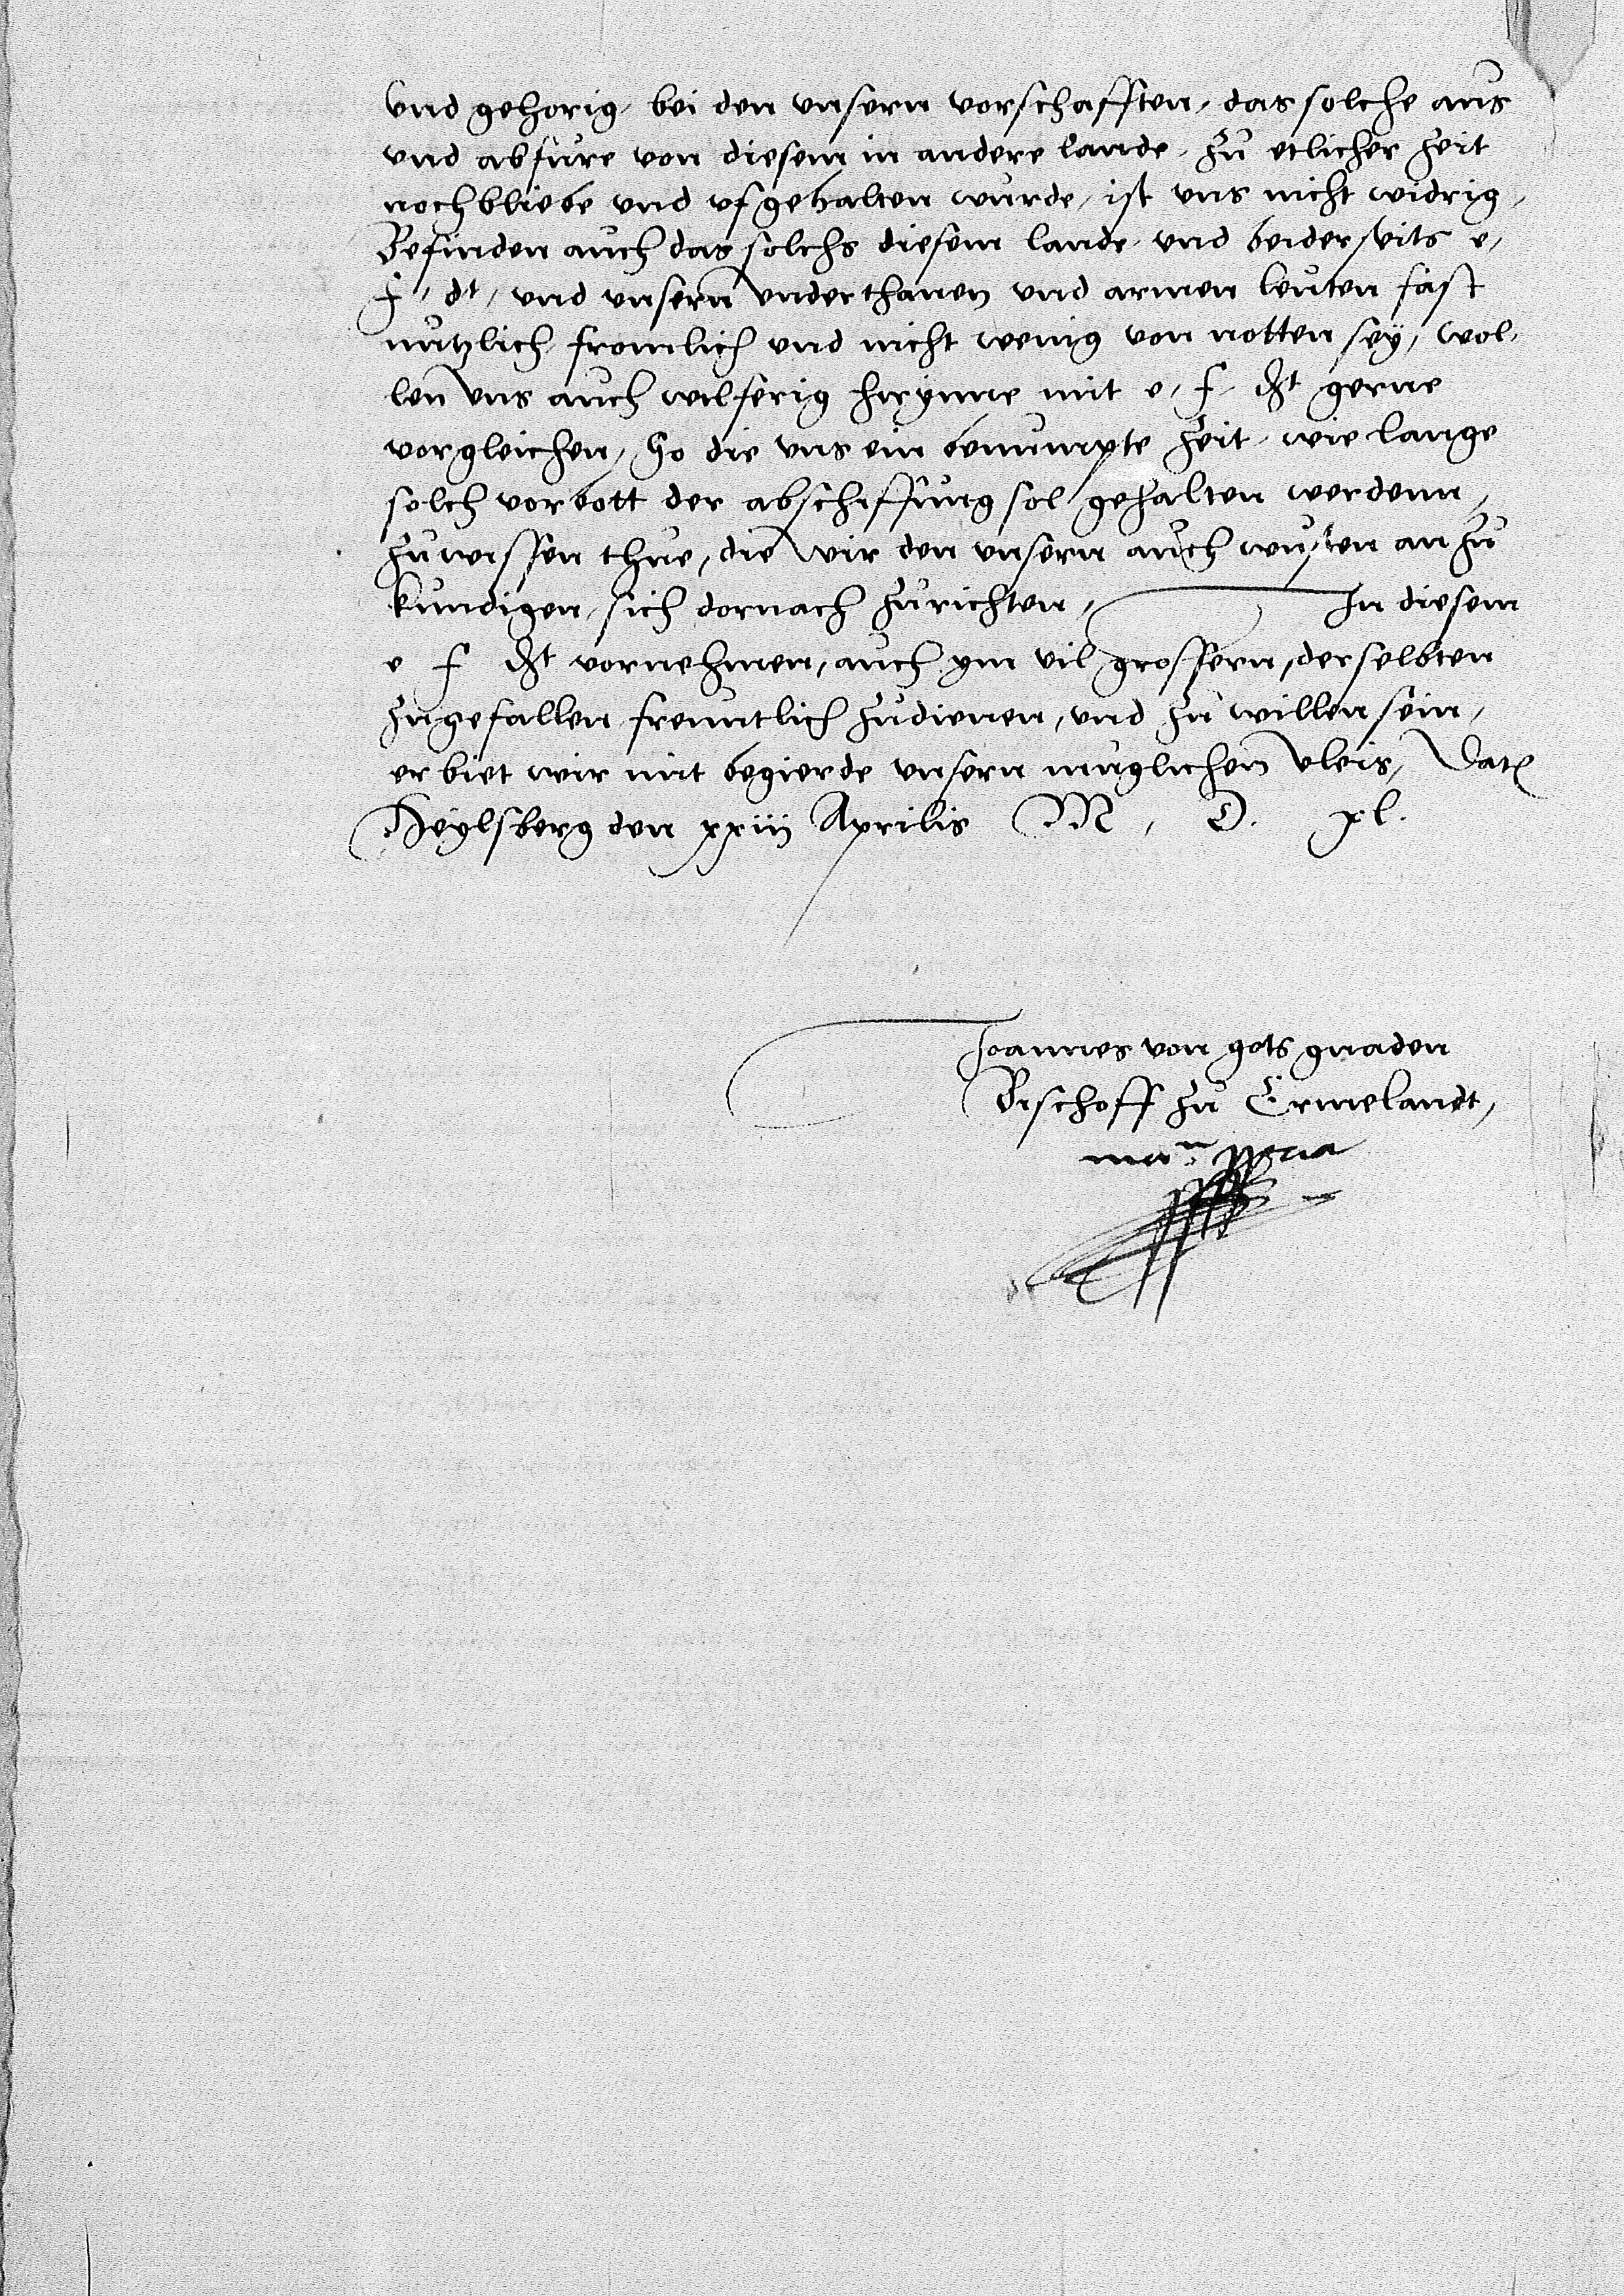 vnd gehorig, bei den vnsern vorschafften, das solche aus
vnd abfure von diesem in andere lande, zu etlicher zeit
nochbliebe vnd vfgehalten wurde, ist vns nicht widrig,
Befinden auch das solchs diesem lande, vnd beiderseits e,
f, dt, vnd vnsern vnderthanen vnd armen leuten fast
nutzlich fromlich vnd nicht wenig von notten sey, wol-
len vns auch wilferig hirynne mit e, f, dt gerne
vorgleichen, So die vns ein benumpte zeit, wie lange
solch vorbott der abschiffung sol gehalten werdenn,
zuwissen thue, die wir den vnsern auch wusten an zu
kundigen, sich dornach zurichten, In diesem
e f dt vornehmen, auch ym vil grossern, derselbten
zugefallen freuntlich zudienen, vnd zu willen sein,
erbiet wir mit begierde vnsern muglichen vleis, Dat
Heylsberg den xxiij Aprilis M, D. xl.
Joannes von gots gnaden
Bischoff zu Ermelandt,
man ppria